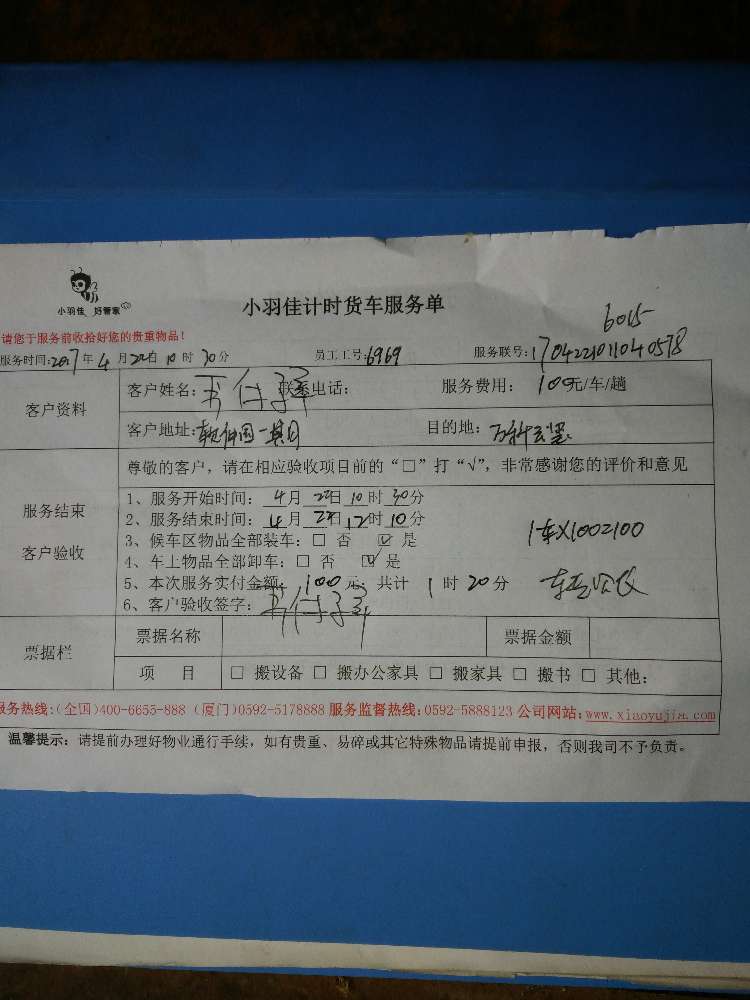 小羽佳 好管家
小羽佳计时货车服务单
6015
请您于服务前收拾好您的贵重物品！
服务时间:2017年4月22日10时30分 员工工号:6969 服务联号:1704221011040578
客户资料
客户姓名: 联系电话: 服务费用: 100元/车/趟
客户地址:软件园一期 目的地: 万科云玺
服务结束
客户验收
尊敬的客户，请在相应验收项目前的“□”打“√”，非常感谢您的评价和意见
1、服务开始时间: 4月22日10时30分
2、服务结束时间: 4月22日12时10分
3、候车区物品全部装车: □ 否 ☑ 是
1车X100=100
4、车上物品全部卸车: □ 否 ☑ 是
5、本次服务实付金额: 100元; 共计 1时20分
6、客户验收签字:
票据栏
票据名称 票据金额
项 目 □ 搬设备 □ 搬办公家具 □ 搬家具 □ 搬书 □ 其他:
服务热线:(全国)400-6655-888 (厦门)0592-5178888 服务监督热线:0592-5888123 公司网站:www.xiaoyujia.com
温馨提示: 请提前办理好物业通行手续，如有贵重、易碎或其它特殊物品请提前申报，否则我司不予负责。